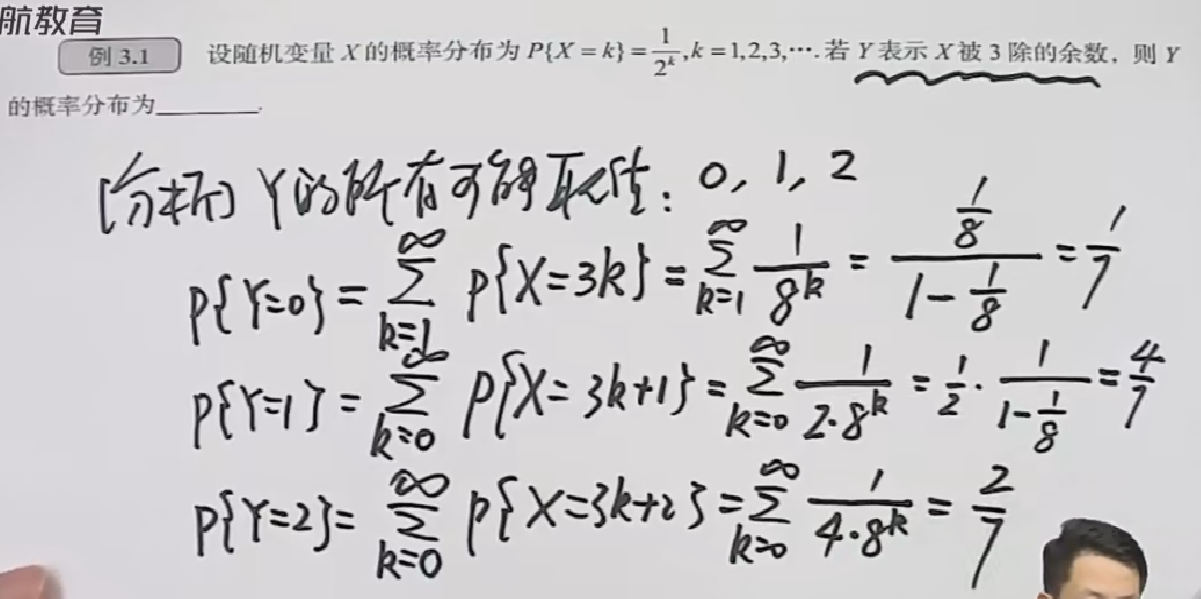 航教育
例 3.1 设随机变量 X 的概率分布为 P{X = k} = 1/2^k, k = 1,2,3,⋯. 若 Y 表示 X 被 3 除的余数，则 Y
的概率分布为________.
[分析] Y的所有可能取值：0, 1, 2
P{Y=0} = ∑_{k=1}^{∞} P{X=3k} = ∑_{k=1}^{∞} 1/8^k = (1/8)/(1-1/8) = 1/7
P{Y=1} = ∑_{k=0}^{∞} P{X=3k+1} = ∑_{k=0}^{∞} 1/(2·8^k) = 1/2 · 1/(1-1/8) = 4/7
P{Y=2} = ∑_{k=0}^{∞} P{X=3k+2} = ∑_{k=0}^{∞} 1/(4·8^k) = 2/7